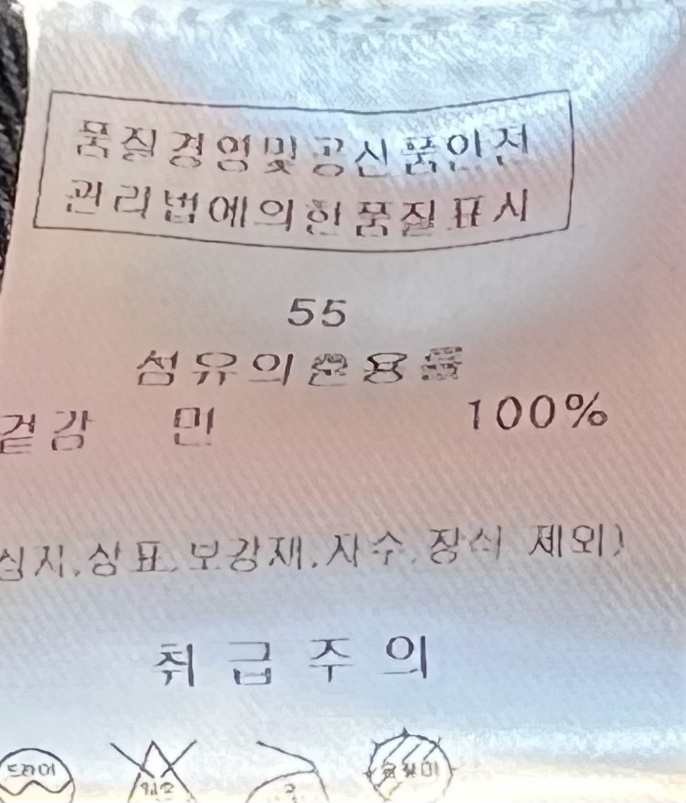 품질경영및공산품안전
관리법에의한품질표시
55
섬유의혼용률
겉감 면 100%
심지,상표,보강재,자수,장식 제외)
취급주의
드라이